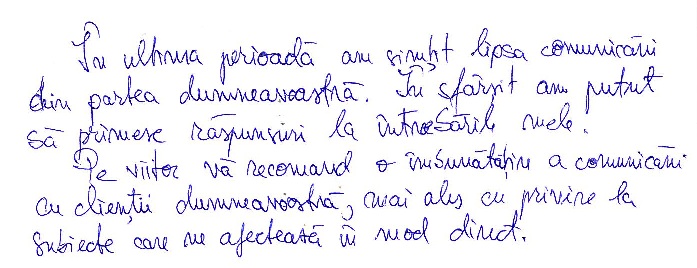 În ultima perioadă am simțit lipsa comunicării
din partea dumneavoastră. În sfârșit am putut
să primesc răspunsuri la întrebările mele.
Pe viitor vă recomand o îmbunătățire a comunicării
cu clienții dumneavoastră, mai ales cu privire la
subiecte care ne afectează în mod direct.